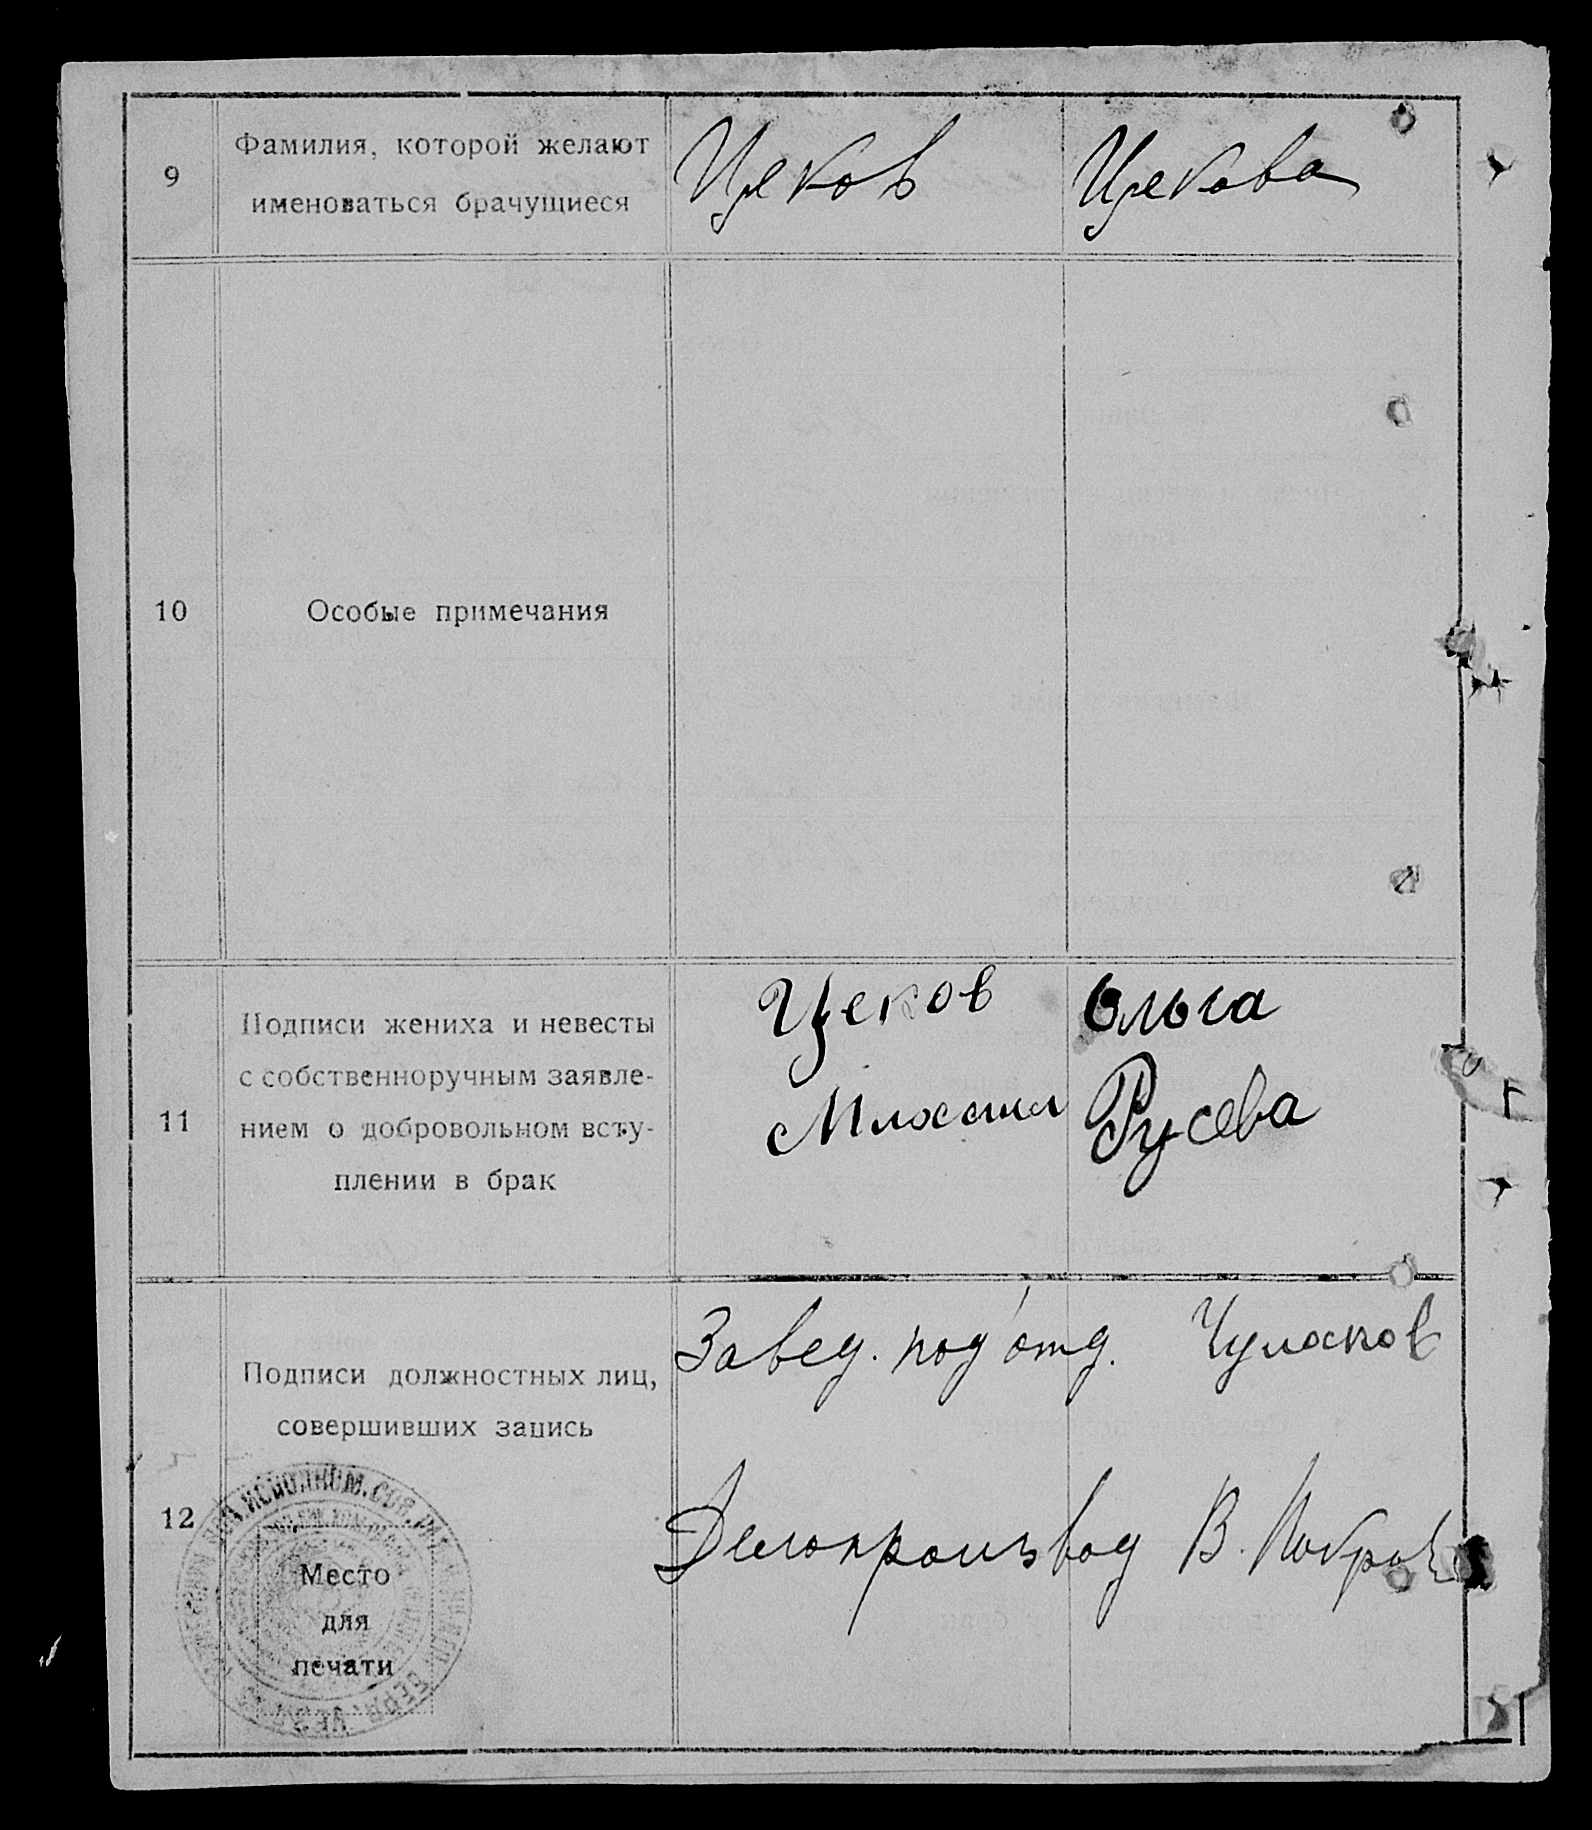 9
Фамилия, которой желают
именоваться брачущиеся
Цеков
Цекова
10
Особые примечания
11
Подписи жениха и невесты
с собственноручным заявле-
нием о добровольном всту-
плении в брак
Цеков
Ольга
Русева
12
Подписи должностных лиц,
совершивших запись
Завед. под'отд.
Делопроизвод В.
ИСПОЛКОМ.
Место
для
печати